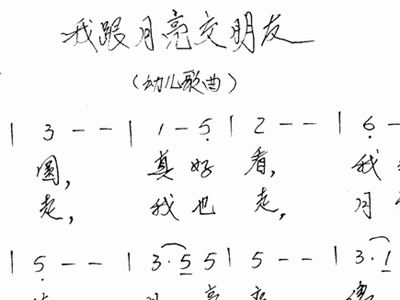 我跟月亮交朋友
（幼儿歌曲）
| 3 - - | 1 - 5 | 2 - - | 6 -
圆， 真 好 看， 我
走， 我 也 走， 月
| 5 - - | 3 · 5 5 | 5 - - | 3 · 1